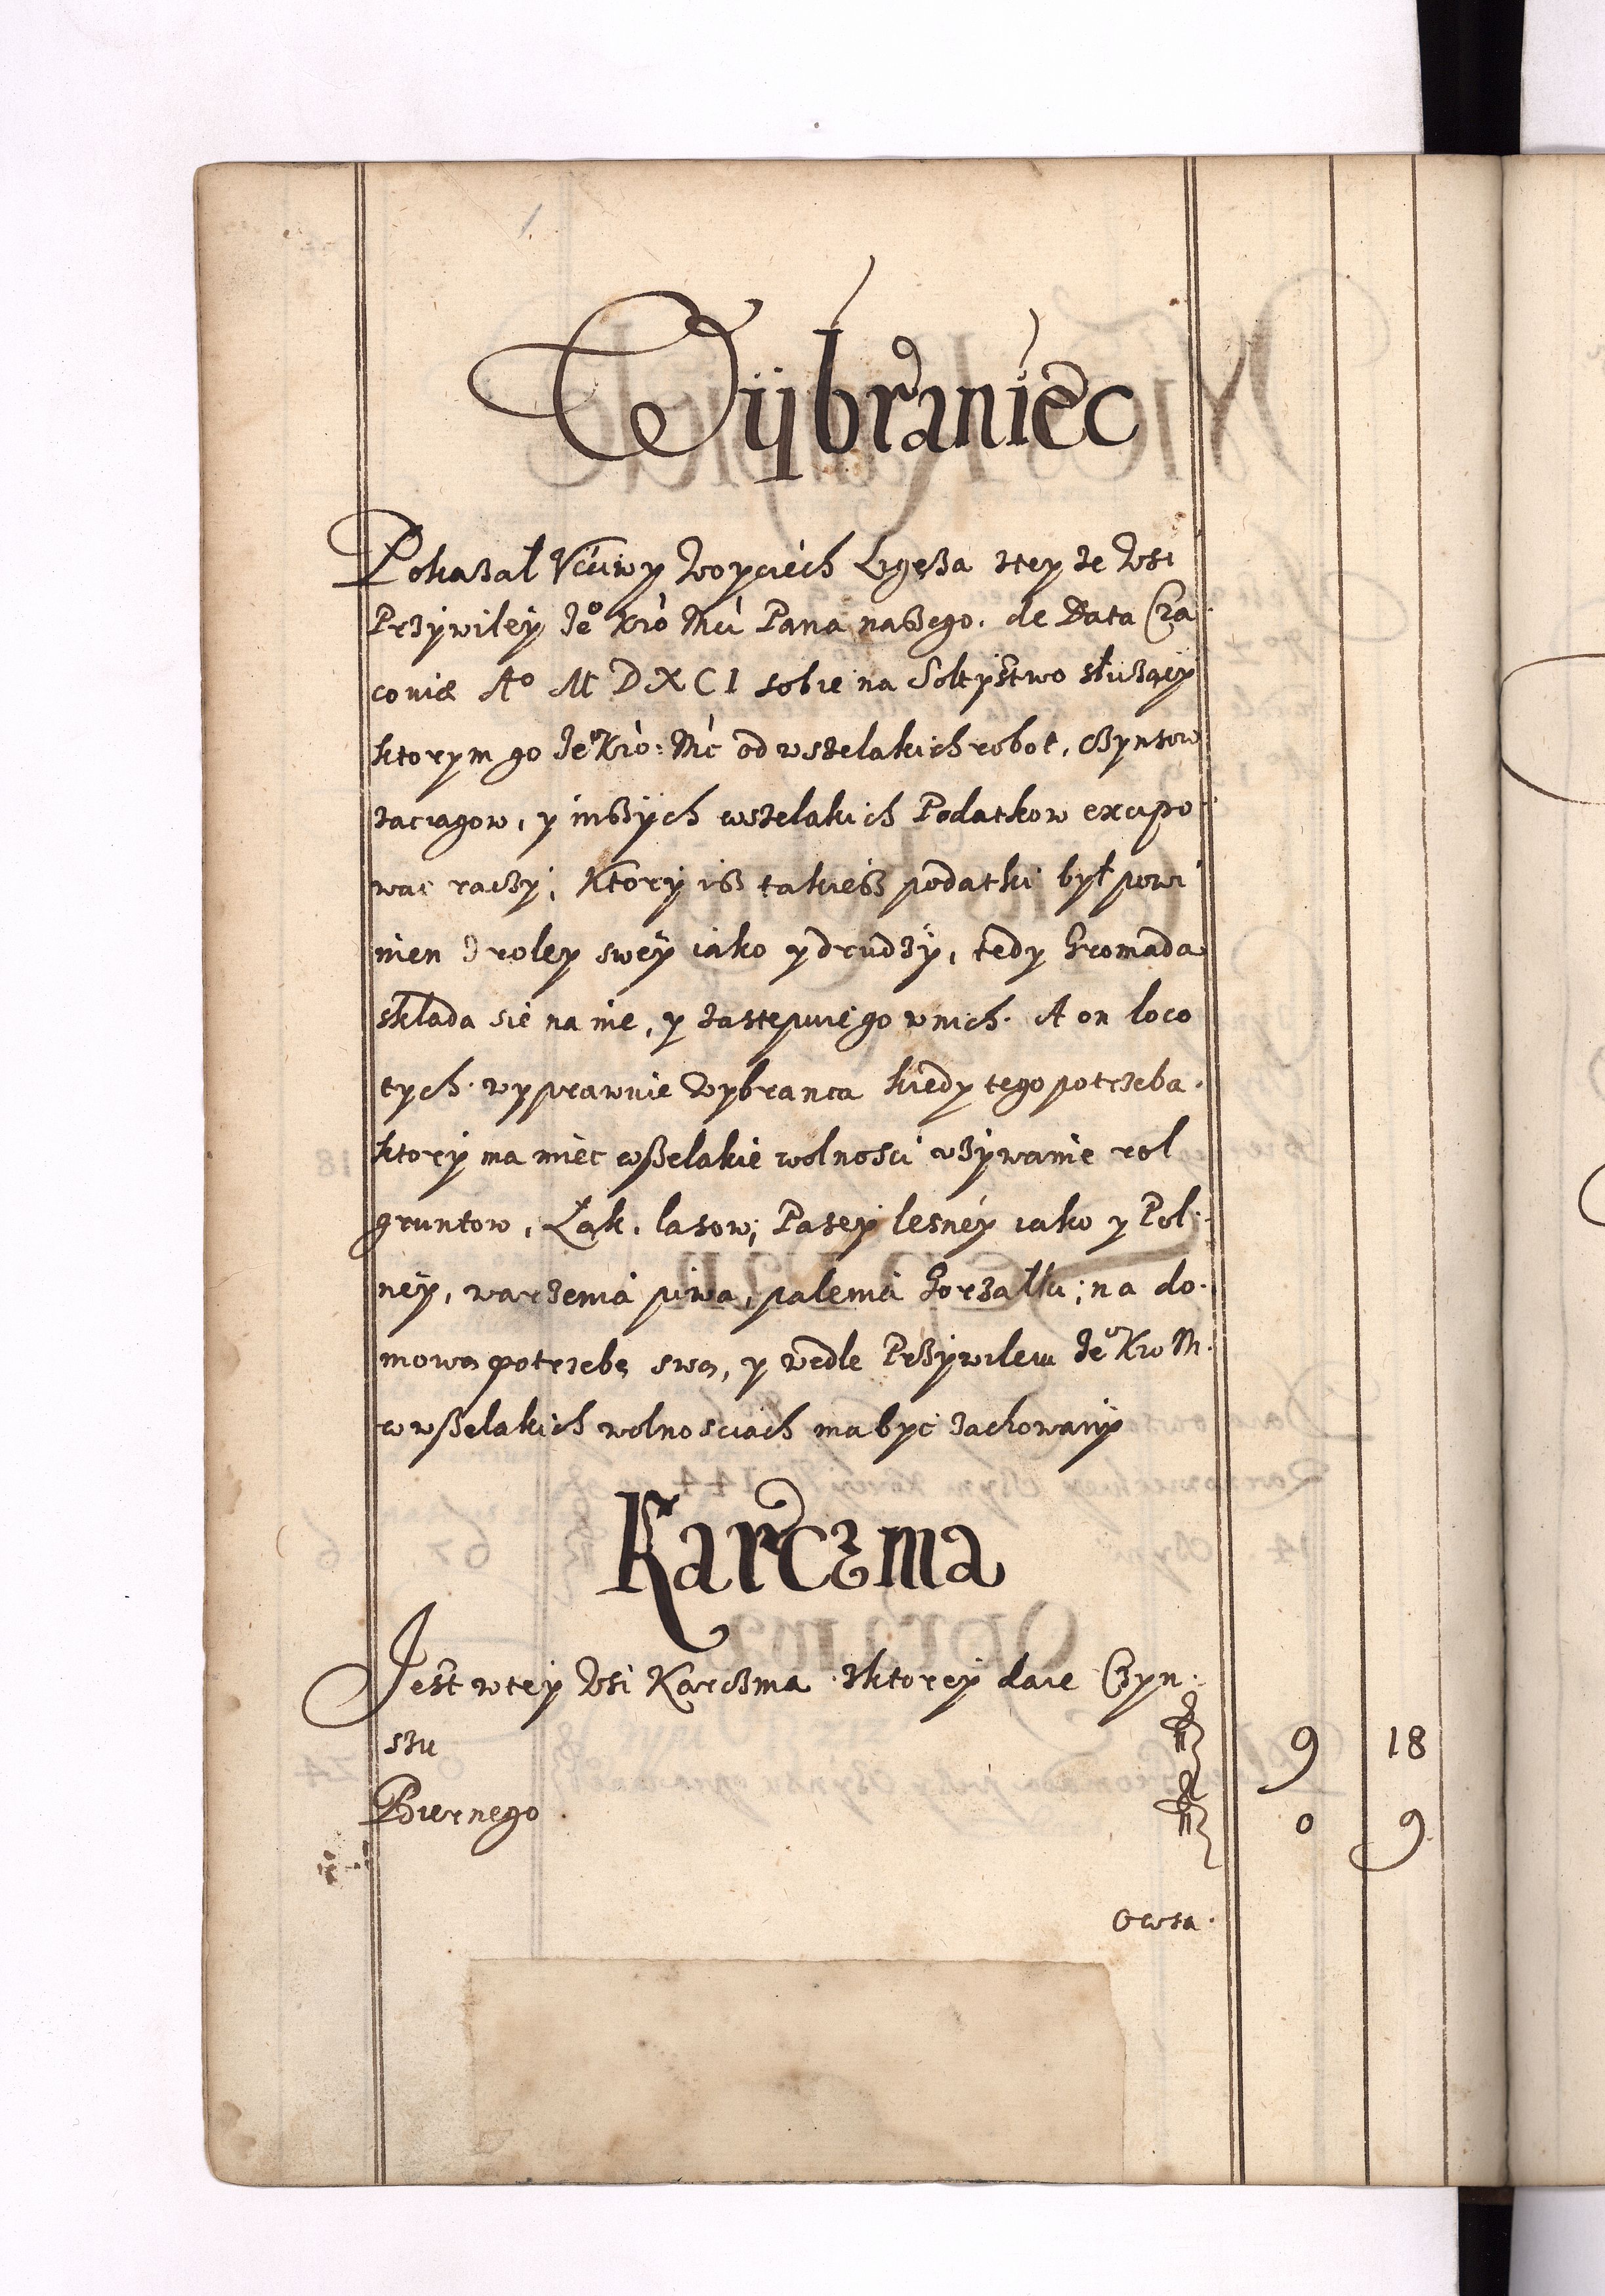 Wÿbraniec
Pokazał Vćiwy Woyciech Ligęza z tey ze Wsi
Przywiley Je° Kró Mći Pana naszego. de Data Cra
coviæ A° M D X C I sobie na Sołtystwo służący
ktorym go Je° Kró: Mć od wszelakich robot, Czynszow
zaciagow, y inszych wszelakich Podatkow excipo
wac raczy; Ktory isz takiesz podatki był powi
nien z roley swey iako y drudzy, tedy Gromada
sklada sie na nie, y zastepuie go w nich. A on loco
tych wyprawuie Wybranca kiedy tego potrzeba.
ktory ma miec wszelakie wolnosci vzywanie rol
gruntow, Łąk, lasow, Pasey lesney iako y Pol
ney, warzenia piwa, palenia Gorzałki; na do
mową potrzebę swą, y wedle Przywileiu Je° Kro M.
w wszelakich wolnosciach ma byc zachowany
Karczma
Jest w tey Wsi Karczma z ktorey daie Czyn
szu 9 18
Poiernego 0 9
Owsa